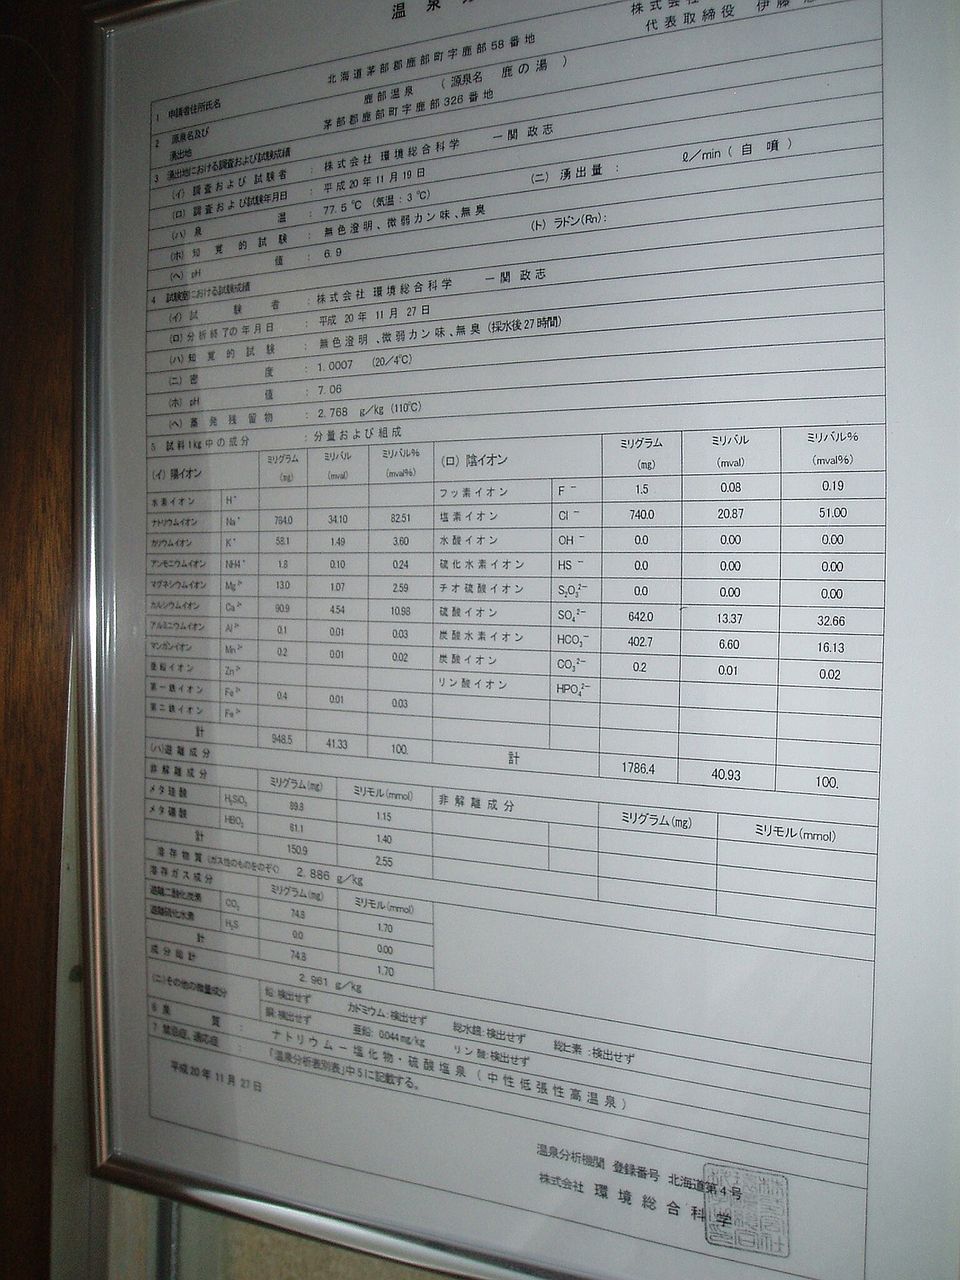 温 泉
株式会
代表取締役 伊藤
1 申請者住所氏名 北海道茅部郡鹿部町字鹿部58番地
2 源泉名及び 鹿部温泉 (源泉名 鹿の湯 )
湧出地 茅部郡鹿部町字鹿部326番地
3 湧出地における調査および試験成績
(イ) 調査および試験者 : 株式会社 環境総合科学 一関 政志
(ロ) 調査および試験年月日 : 平成20年11月19日
(ハ) 泉 温 : 77.5℃ (気温:3℃) (ニ) 湧出量 : ℓ/min (自 噴 )
(ホ) 知覚的試験 : 無色澄明、微弱カン味、無臭
(ヘ) pH 値 : 6.9 (ト) ラドン(Rn):
4 試験室における試験成績
(イ) 試験者 : 株式会社 環境総合科学 一関 政志
(ロ) 分析終了の年月日 : 平成 20年 11月 27日
(ハ) 知覚的試験 : 無色澄明、微弱カン味、無臭(採水後27時間)
(ニ) 密 度 : 1.0007 (20/4℃)
(ホ) pH 値 : 7.06
(ヘ) 蒸発残留物 : 2.768 g/kg (110℃)
5 試料1kg中の成分 : 分量および組成
(イ) 陽イオン ミリグラム (mg) ミリバル (mval) ミリバル% (mval%) (ロ) 陰イオン ミリグラム (mg) ミリバル (mval) ミリバル% (mval%)
水素イオン H⁺ フッ素イオン F⁻ 1.5 0.08 0.19
ナトリウムイオン Na⁺ 784.0 34.10 82.51 塩素イオン Cl⁻ 740.0 20.87 51.00
カリウムイオン K⁺ 58.1 1.49 3.60 水酸イオン OH⁻ 0.0 0.00 0.00
アンモニウムイオン NH4⁺ 1.8 0.10 0.24 硫化水素イオン HS⁻ 0.0 0.00 0.00
マグネシウムイオン Mg²⁺ 13.0 1.07 2.59 チオ硫酸イオン S₂O₃²⁻ 0.0 0.00 0.00
カルシウムイオン Ca²⁺ 90.9 4.54 10.98 硫酸イオン SO₄²⁻ 642.0 13.37 32.66
アルミニウムイオン Al³⁺ 0.1 0.01 0.03 炭酸水素イオン HCO₃⁻ 402.7 6.60 16.13
マンガンイオン Mn²⁺ 0.2 0.01 0.02 炭酸イオン CO₃²⁻ 0.2 0.01 0.02
亜鉛イオン Zn²⁺ リン酸イオン HPO₄²⁻
第一鉄イオン Fe²⁺ 0.4 0.01 0.03
第二鉄イオン Fe³⁺
計 948.5 41.33 100. 計 1786.4 40.93 100.
(ハ)遊離成分
非解離成分 ミリグラム(mg) ミリモル(mmol) 非解離成分 ミリグラム(mg) ミリモル(mmol)
メタ珪酸 H₂SiO₃ 89.8 1.15
メタ硼酸 HBO₂ 61.1 1.40
計 150.9 2.55
溶存物質(ガス性のものをのぞく) 2.886 g/kg
溶存ガス成分 ミリグラム(mg) ミリモル(mmol)
遊離二酸化炭素 CO₂ 74.8 1.70
遊離硫化水素 H₂S 0.0 0.00
計 74.8 1.70
成分総計 2.961 g/kg
(ニ)その他の微量成分 鉛:検出せず カドミウム:検出せず 総水銀:検出せず 総ヒ素:検出せず
銅:検出せず 亜鉛:0.044mg/kg リン酸:検出せず
6 泉 質 : ナトリウム-塩化物・硫酸塩泉(中性低張性高温泉)
7 禁忌症、適応症 : 「温泉分析表別表」中5に記載する。
平成20年11月27日
温泉分析機関 登録番号 北海道第4号
株式会社 環境総合科学